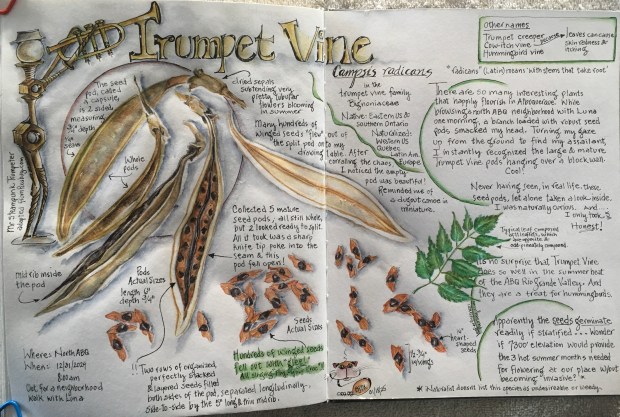 Trumpet Vine
Campsis radicans
the seed
pod, called
a capsule,
is 2 sided
measuring
3/4" depth
via
seam
Whole
pods
Mr. Steampunk Trumpeter
dried sepals
subtending very
pretty tubular
flowers blooming
in summer
Many hundreds of
winged seeds "flew" out of
the split pod onto my
drawing table. After
corralling the chaos,
I noticed the empty
pod was beautiful!
Reminded me of
a dugout canoe in
miniature.
in the
trumpet vine family
Bignoniaceae
Native: Eastern US &
southern Ontario
Naturalized:
Western US
Quebec
Latin Am.
Europe
Collected 5 mature
seed pods, all still whole,
but 2 looked ready to split.
All it took was a sharp
knife tip poke into the
seam & this
pod fell open!
Midrib inside
the pod
Pods
Actual Sizes
length 8"
depth 3/4"
Seeds
Actual Sizes
Where: North ABQ
When: 12/01/2024
8:10am
Out for a neighborhood
walk with Luna
!! Two rows of organized,
perfectly stacked
& layered seeds filled
both sides of the pod, separated longitudinally,
side-to-side by the 5" long & thin midrib.
Hundreds of winged seeds
fell out with "glee"!
Other names
Trumpet creeper
Cow-itch vine because leaves can cause
skin redness &
itching
Hummingbird vine
*'radicans' (Latin) means 'with stems that take root'
There are so many interesting plants
that happily flourish in Albuquerque. While
browsing a north ABQ neighborhood with Luna
one morning, a branch loaded with vibrant seed
pods smacked my head. Turning my gaze
up from the ground to find my assailant,
I instantly recognized the large & mature
Trumpet Vine pods hanging over a block wall.
Cool!
Never having seen, in real life, these
seed pods, let alone taken a look inside,
I was naturally curious. And...
I only took 5
Honest!
Typical leaf composed
of leaflets, which
are opposite &
odd-pinnately compound.
It's no surprise that Trumpet Vine
does so well in the summer heat
of the ABQ Rio Grande Valley. And
they are a treat for hummingbirds.
Apparently the seeds germinate
readily if stratified... Wonder
if 5300' elevation would provide
the 3 hot summer months needed
for flowering at our place w/out
becoming "invasive"? *
* Naturalist doesn't list this species as undesirable or weedy.
1/4"
heart-
shaped
seeds
1/2-3/4"
w/wings